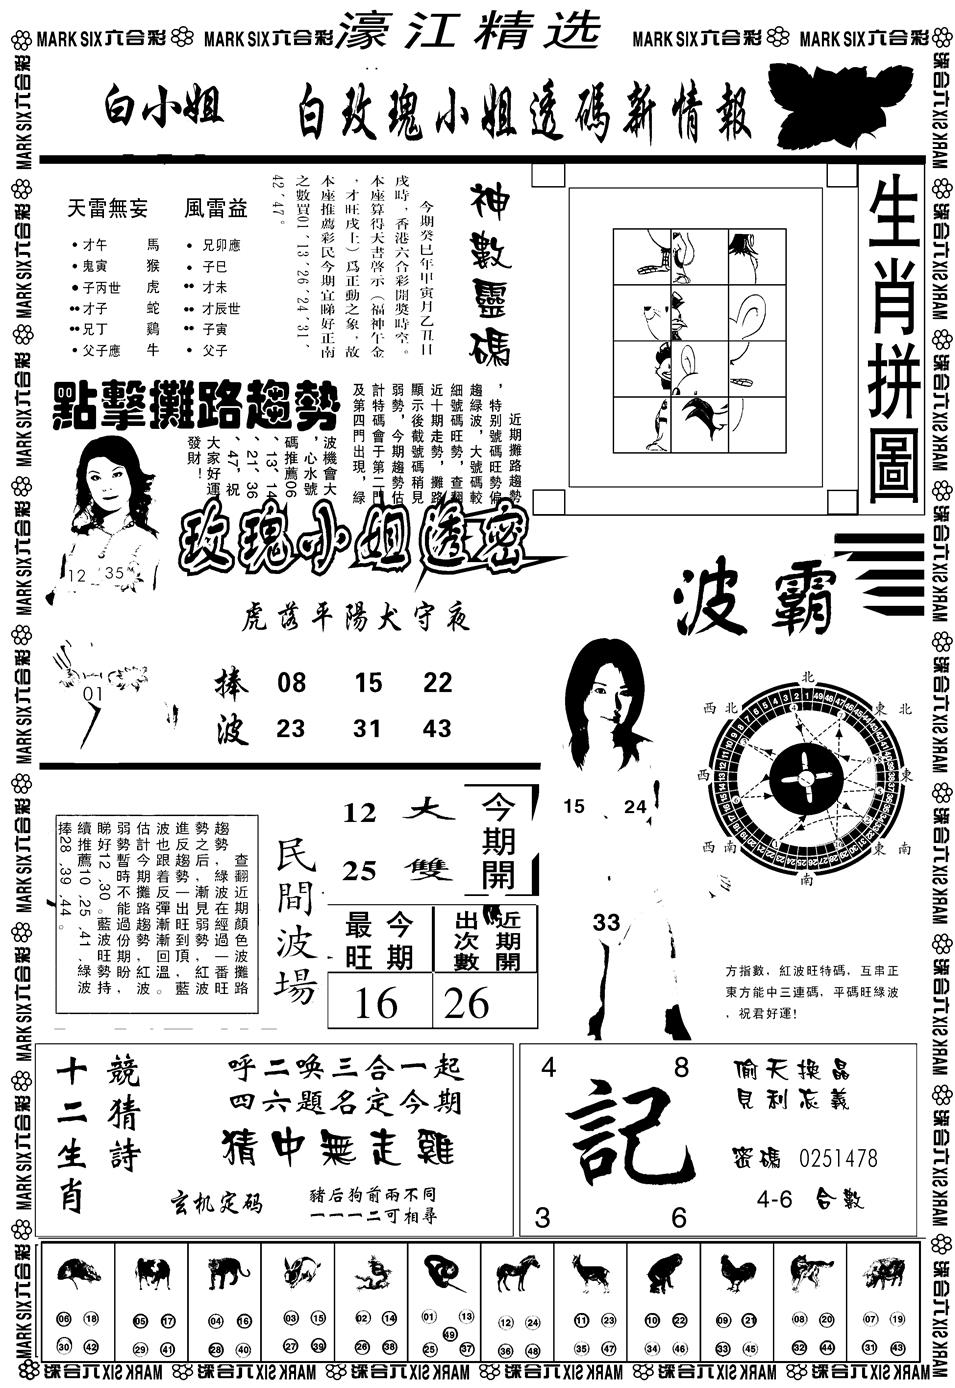 MARK SIX六合彩 MARK SIX六合彩 濠江精选 MARK SIX六合彩 MARK SIX六合彩
白小姐 白玫瑰小姐透碼新情報
天雷無妄 風雷益
才午 馬 兄卯應
鬼寅 猴 子巳
子丙世 虎 才未
才子 蛇 才辰世
兄丁 鷄 子寅
父子應 牛 父子
神數靈碼
今期癸巳年甲寅月乙丑日
戌時，香港六合彩開獎時空。
本座算得天書啓示（福神午金
，才旺戌土）爲正動之象，故
本座推薦彩民今期宜睇好正南
之數買01、13、26、24、31、
42、47。
生肖拼圖
點擊攤路趨勢
近期攤路趨勢
，特別號碼旺勢偏
趨綠波，大號碼較
細號碼旺勢，查翻
近十期走勢，攤路
顯示後截號碼稍見
弱勢，今期趨勢估
計特碼會于第二門
及第四門出現，綠
波機會大
，心水號
碼推薦06
、13、14
、21、36
、47，祝
大家好運
發財！
12 35
01
玫瑰小姐透密
虎落平陽犬守夜
捧 08 15 22
波 23 31 43
波霸
15 24
33
北
東北
東
東南
南
西南
西
西北
方指數，紅波旺特碼，互串正
東方能中三連碼，平碼旺綠波
，祝君好運！
查翻近期顏色波攤路
趨勢，綠波在經過一番旺
勢之后，漸見弱勢，紅波
進反趨勢一出旺到頂，藍
波也跟着反彈漸漸回溫。
估計今期攤路趨勢紅波
弱勢暫時不能過份期盼，
睇好12、30。藍波旺勢持
續推薦10、25、41，綠波
捧28、39、44。
民間波場
12 大 今期開
25 雙
最旺 今期 出次數 近期開
16 26
十二生肖
競猜詩
呼二唤三合一起
四六題名定今期
猜中無走雞
玄机定码
豬后狗前兩不同
一一一二可相尋
4 8
記
3 6
偷天換晶
見利忘義
密碼 0251478
4-6 合數
06 18 05 17 04 16 03 15 02 14 01 13 12 24 11 23 10 22 09 21 08 20 07 19
49
30 42 29 41 28 40 27 39 26 38 25 37 36 48 35 47 34 46 33 45 32 44 31 43